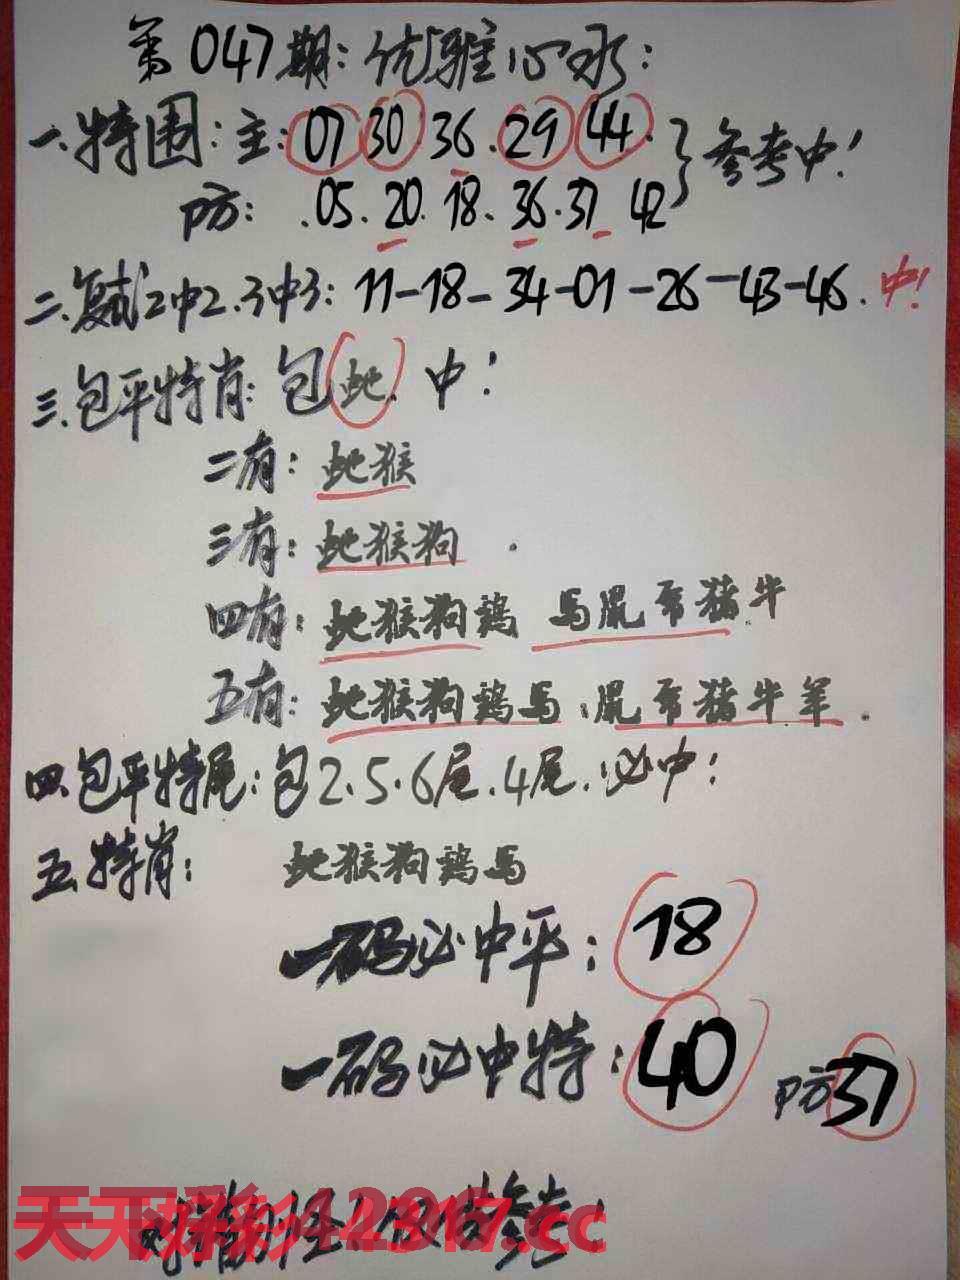 第047期：优雅心水：
一.特围：主：07 30.36.29.44.}参考中！
防：.05.20.18.36.37 42
二.复试2中2.3中3：11-18-34-01-26-43-46.中！
三.包平特肖：包蛇.中！
二有：蛇猴
三有：蛇猴狗.
四有：蛇猴狗鸡 马鼠 猪牛
五有：蛇猴狗鸡马.鼠 猪牛羊.
四.包平特尾：包2.5.6尾.4尾.必中！
五.特肖：蛇猴狗鸡马
一码必中平：18
一码必中特：40 防37
天天 .cc 参考！